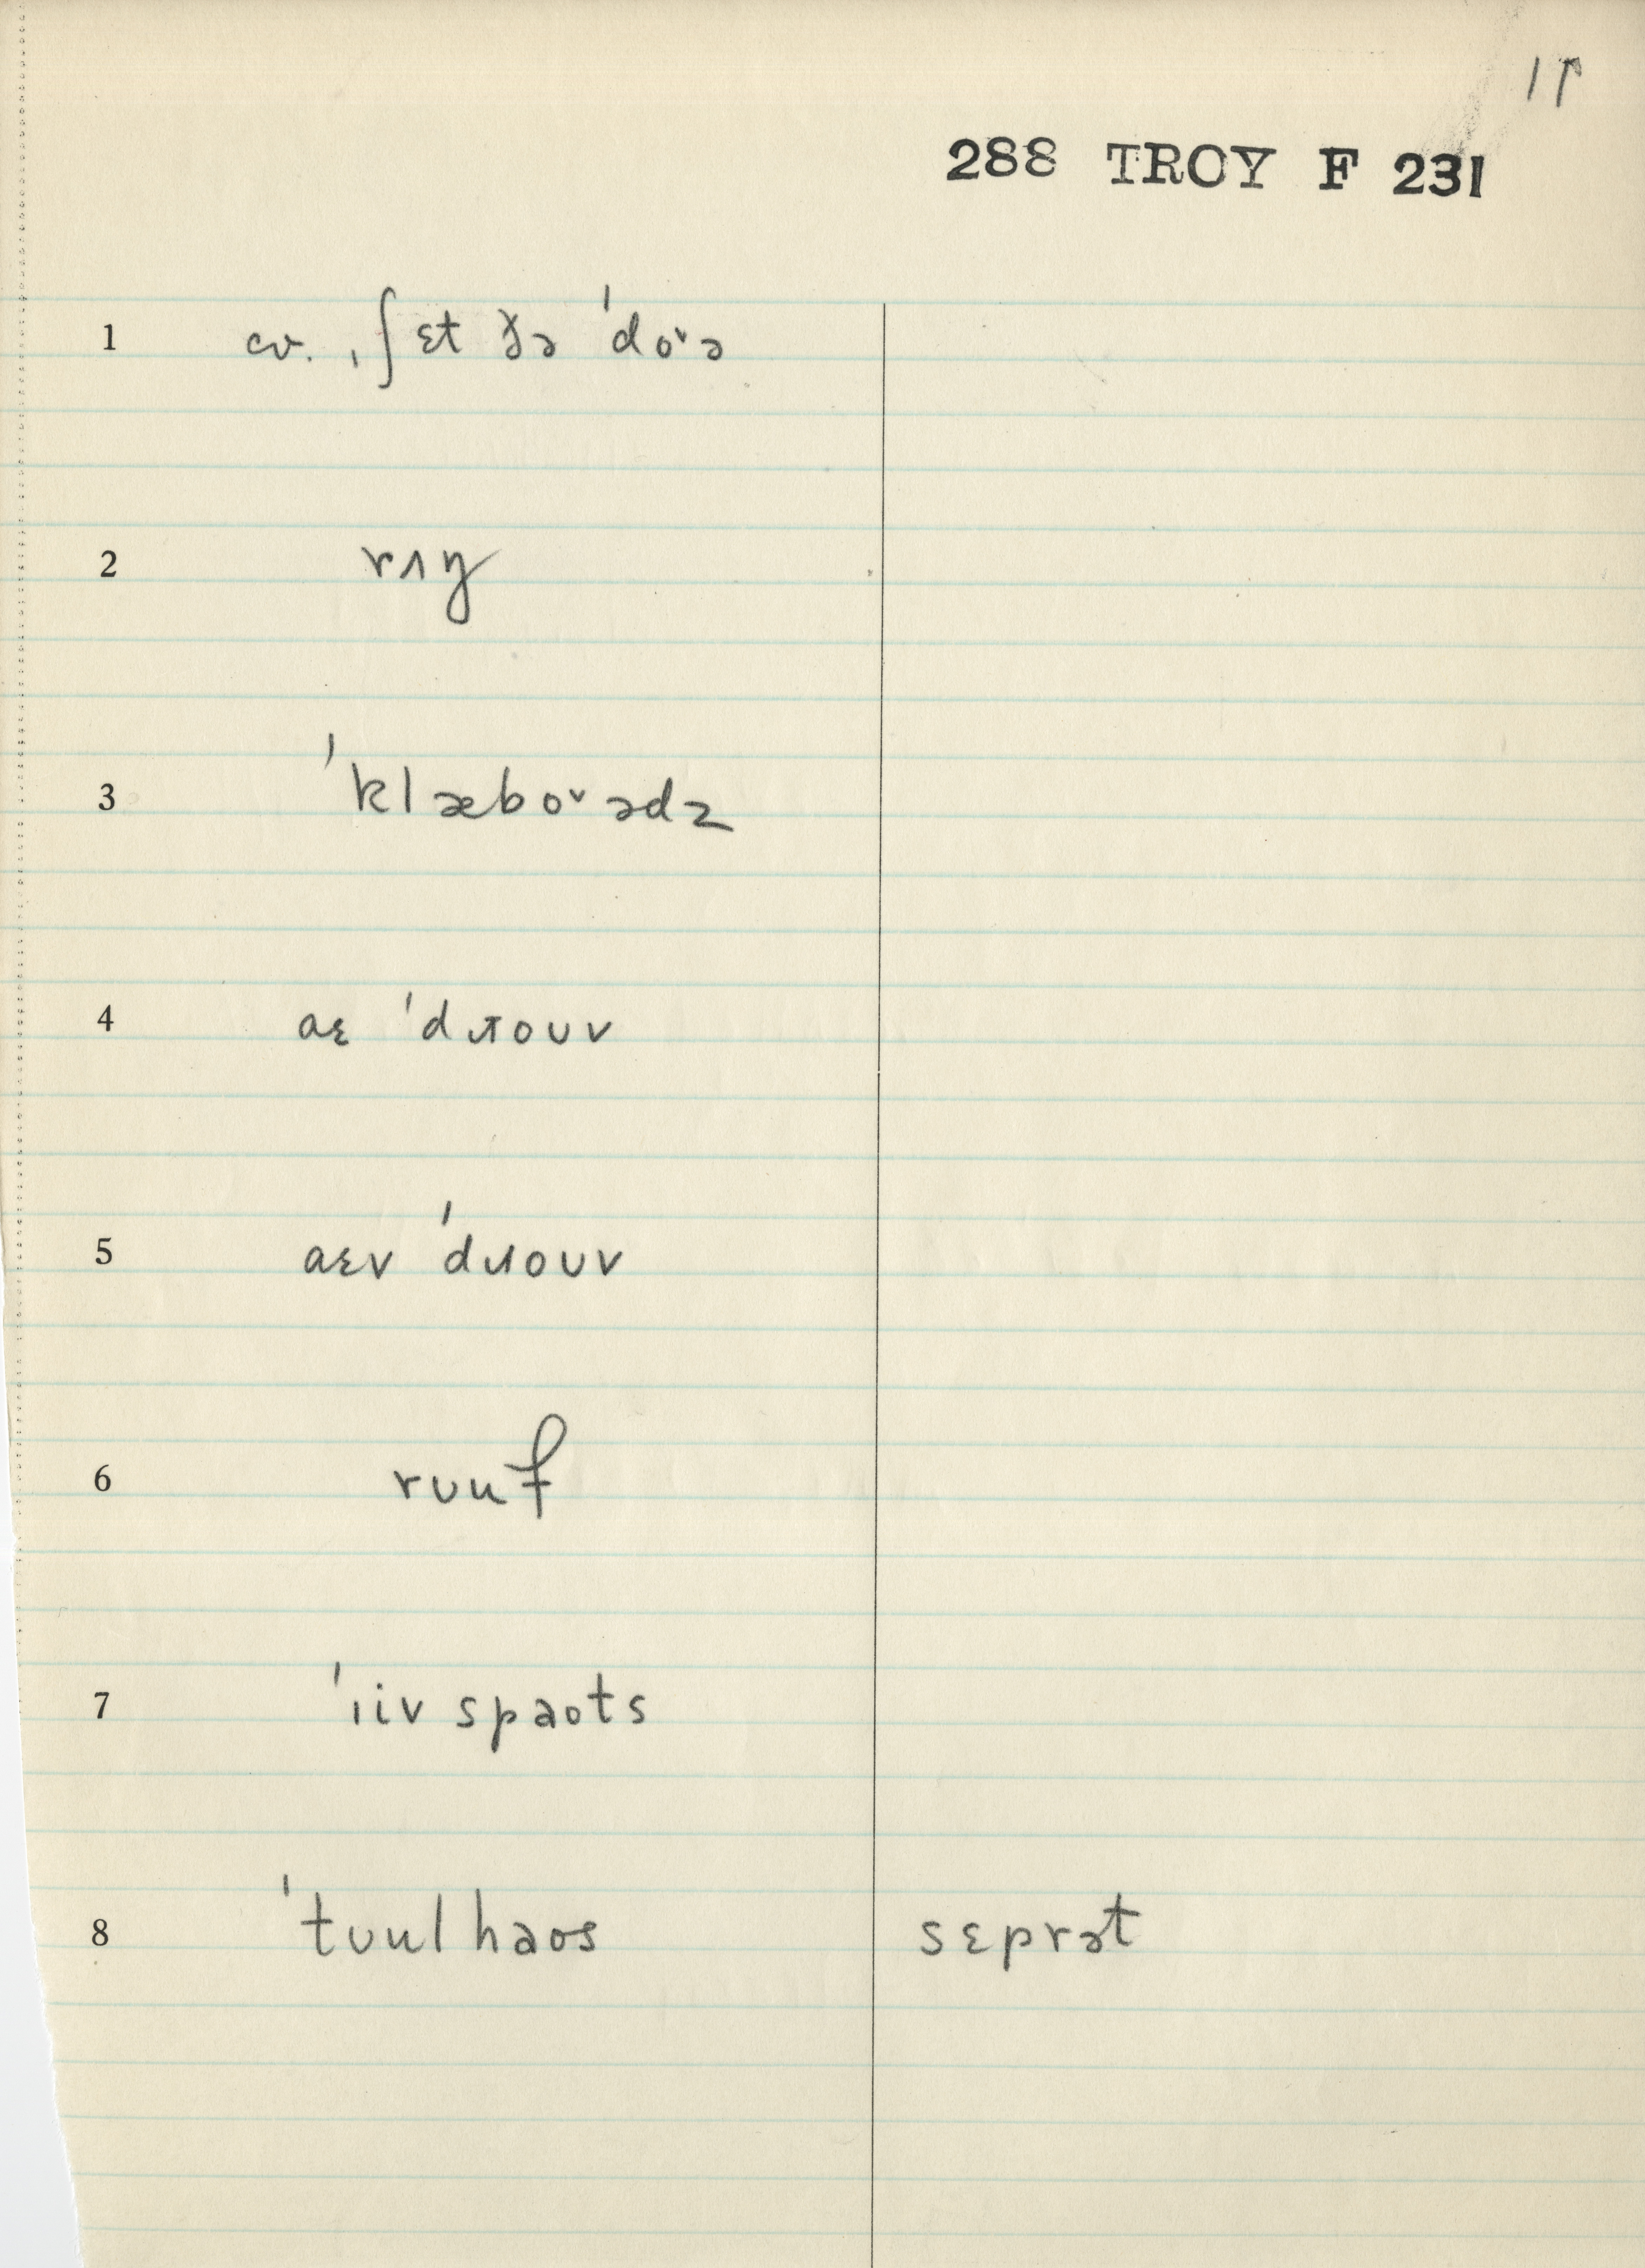 11
288 TROY F 231
1 cv. ˌʃɛt ðə ˈdo˅ə
2 rʌŋ
3 ˈklæbo˅ədz
4 aɛ ˈdɹoʊv
5 aɛv ˈdɹoʊv
6 rʊuf
7 ˈɪivspaots
8 ˈtʊulhaos sɛprət